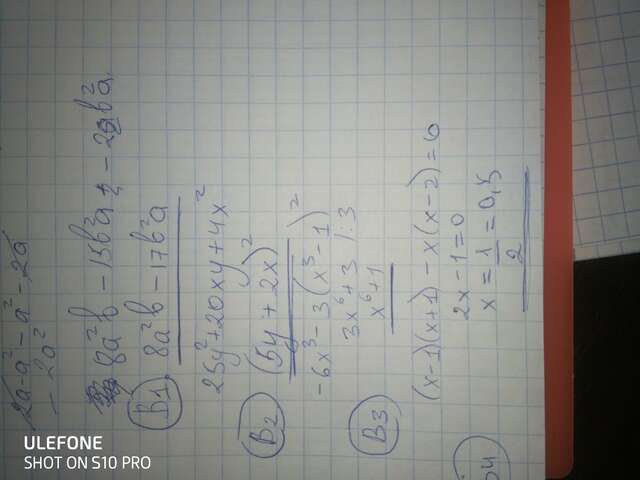 2a-a²-a²-2a
-2a²
8a²b-15b²a-2ab²
B1 8a²b-17b²a
25y²+20xy+4x²
B2 (5y+2x)²
-6x³-3(x³-1)²
3x⁶+3 |:3
B3 x⁶+1
(x-1)(x+1)-x(x-2)=0
2x-1=0
x=1/2=0,5
ULEFONE
SHOT ON S10 PRO